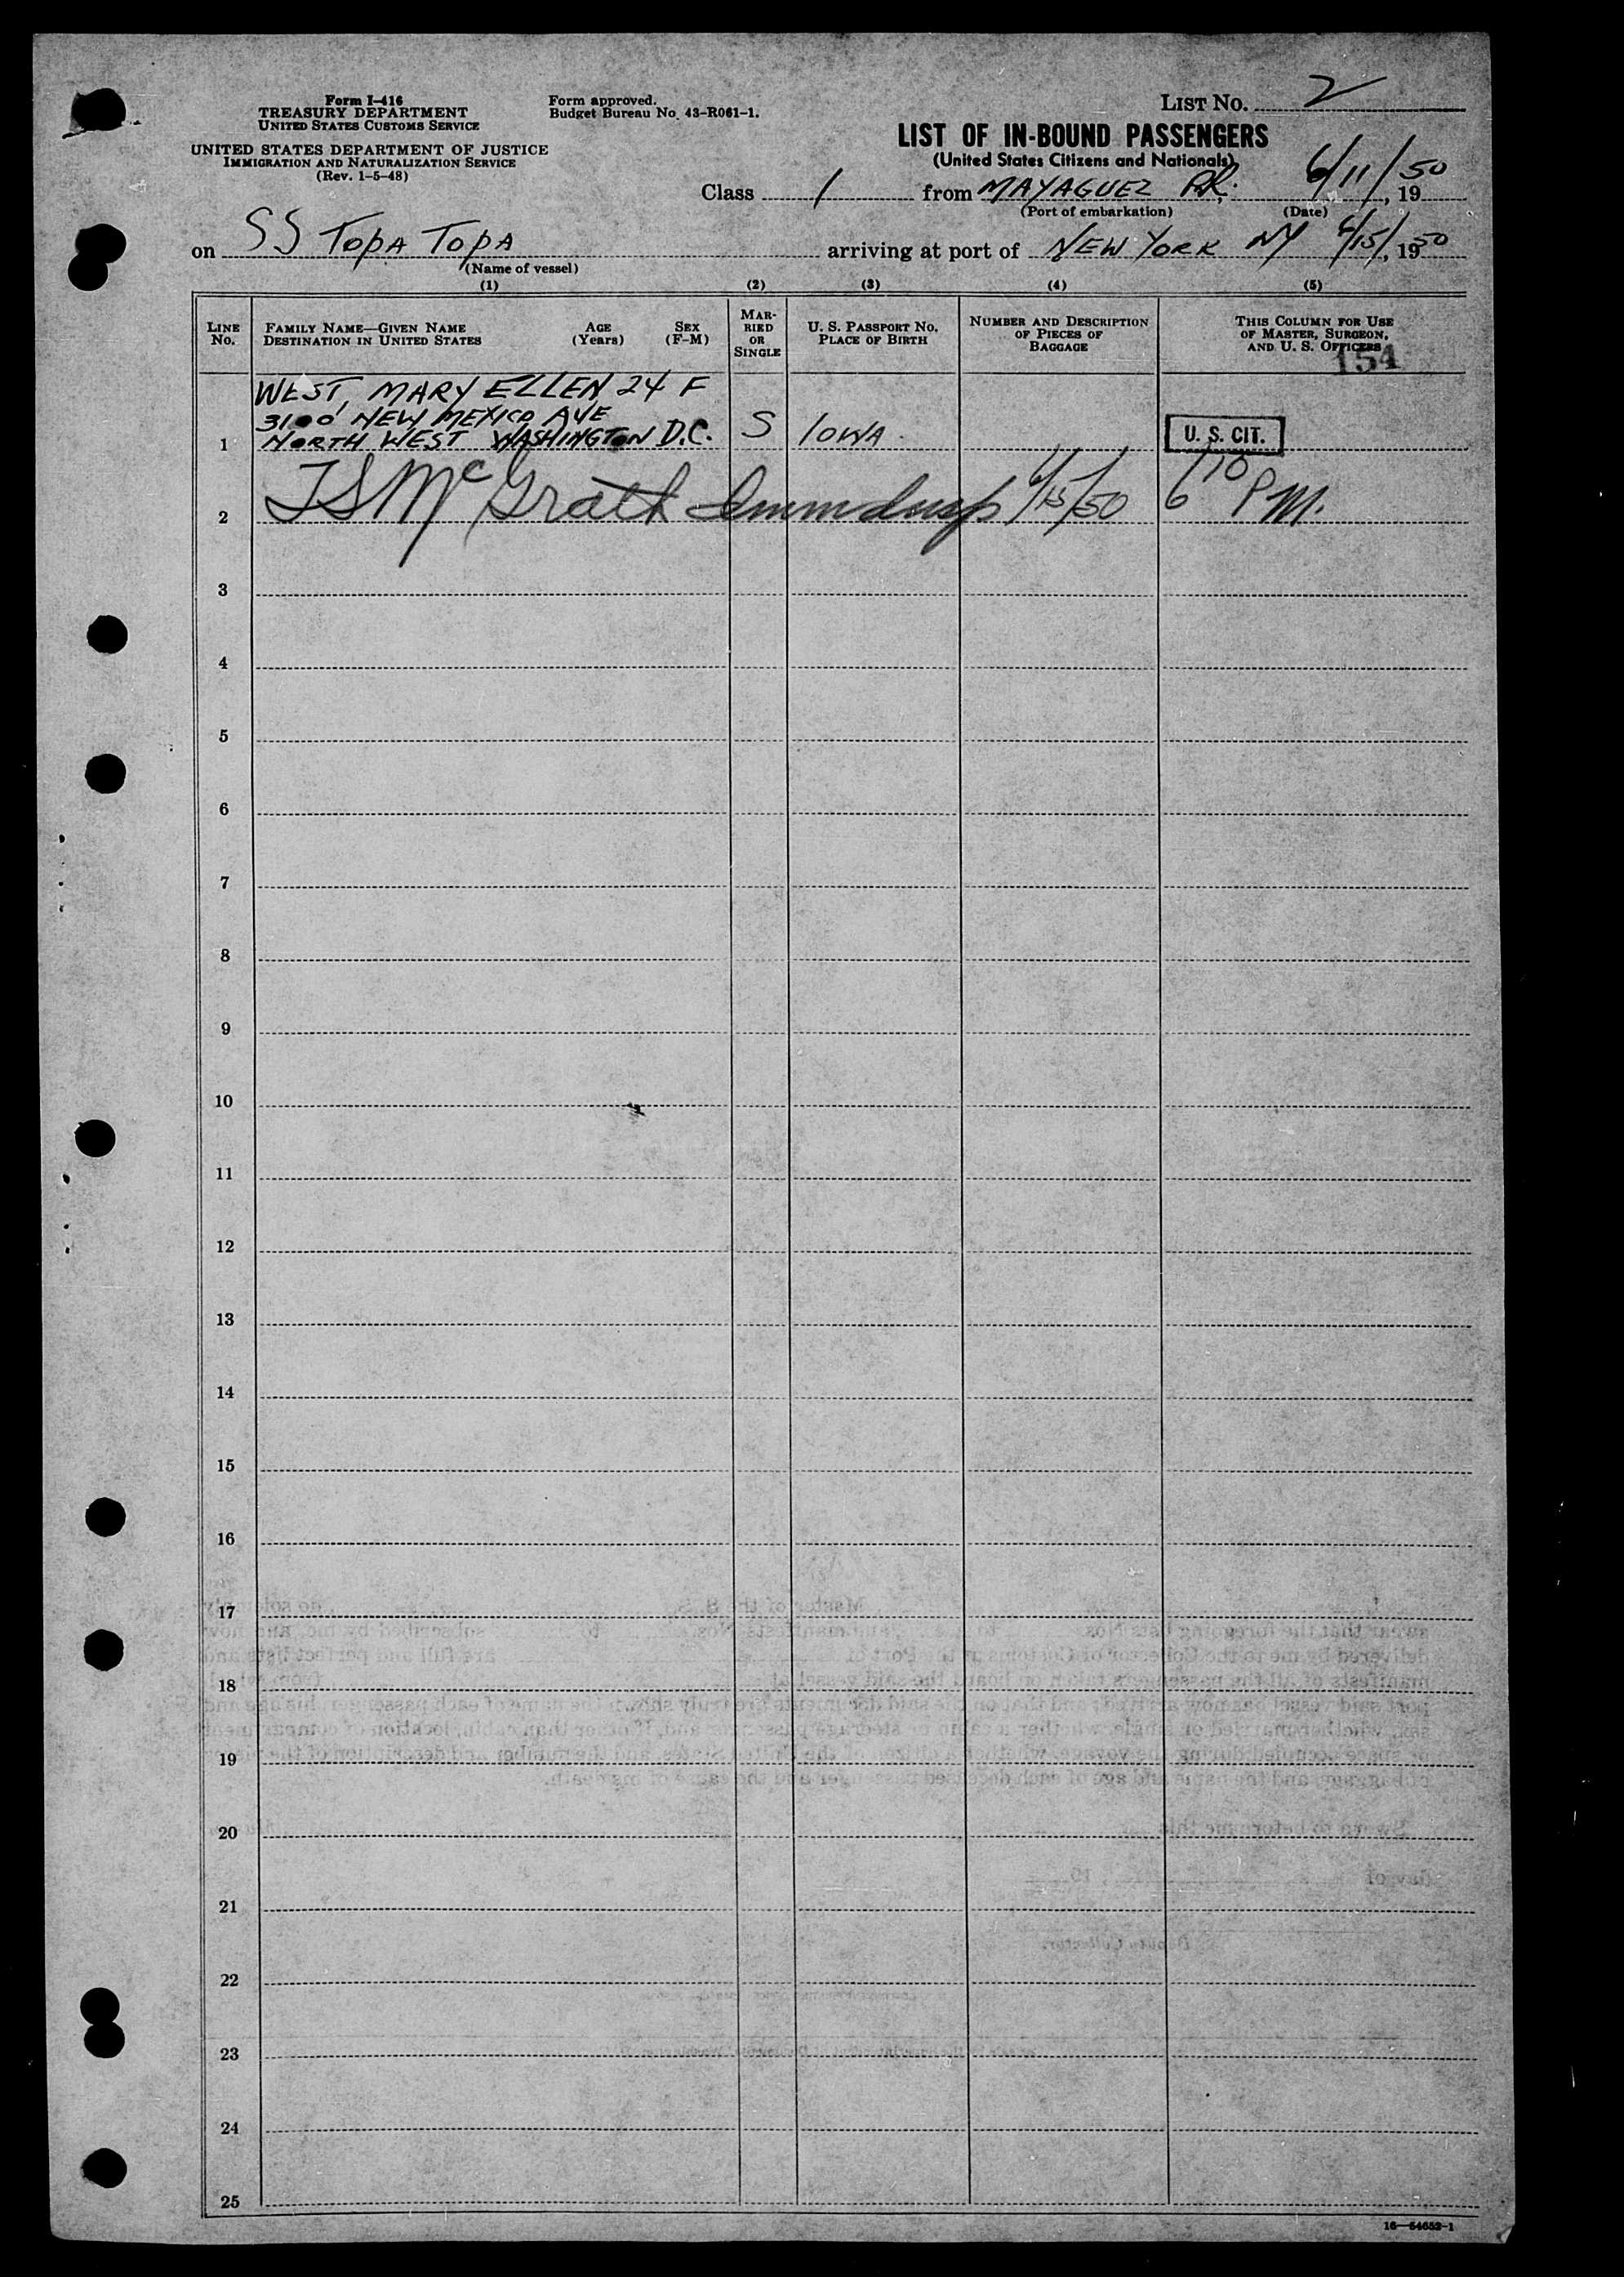 Form I-416
TREASURY DEPARTMENT
UNITED STATES CUSTOMS SERVICE
UNITED STATES DEPARTMENT OF JUSTICE
IMMIGRATION AND NATURALIZATION SERVICE
(Rev. 1-5-48)
Form approved.
Budget Bureau No. 43-R061-1.
LIST NO. 2
LIST OF IN-BOUND PASSENGERS
(United States Citizens and Nationals)
Class 1 from MAYAGUEZ P.R. 6/11/50, 19
(Port of embarkation) (Date)
on SS TOPA TOPA arriving at port of NEW YORK NY 6/15/, 1950
(Name of vessel)
(1) (2) (3) (4) (5)
LINE NO.
FAMILY NAME—GIVEN NAME
DESTINATION IN UNITED STATES
AGE (Years)
SEX (F-M)
MARRIED OR SINGLE
U. S. PASSPORT NO.
PLACE OF BIRTH
NUMBER AND DESCRIPTION
OF PIECES OF
BAGGAGE
THIS COLUMN FOR USE
OF MASTER, SURGEON,
AND U. S. OFFICERS
154
WEST, MARY ELLEN 24 F
3100 NEW MEXICO AVE
1 NORTH WEST WASHINGTON D.C. S IOWA. U. S. CIT.
2 McGrath 6/15/50 6 10 PM.
3
4
5
6
7
8
9
10
11
12
13
14
15
16
17
18
19
20
21
22
23
24
25
16—54652-1